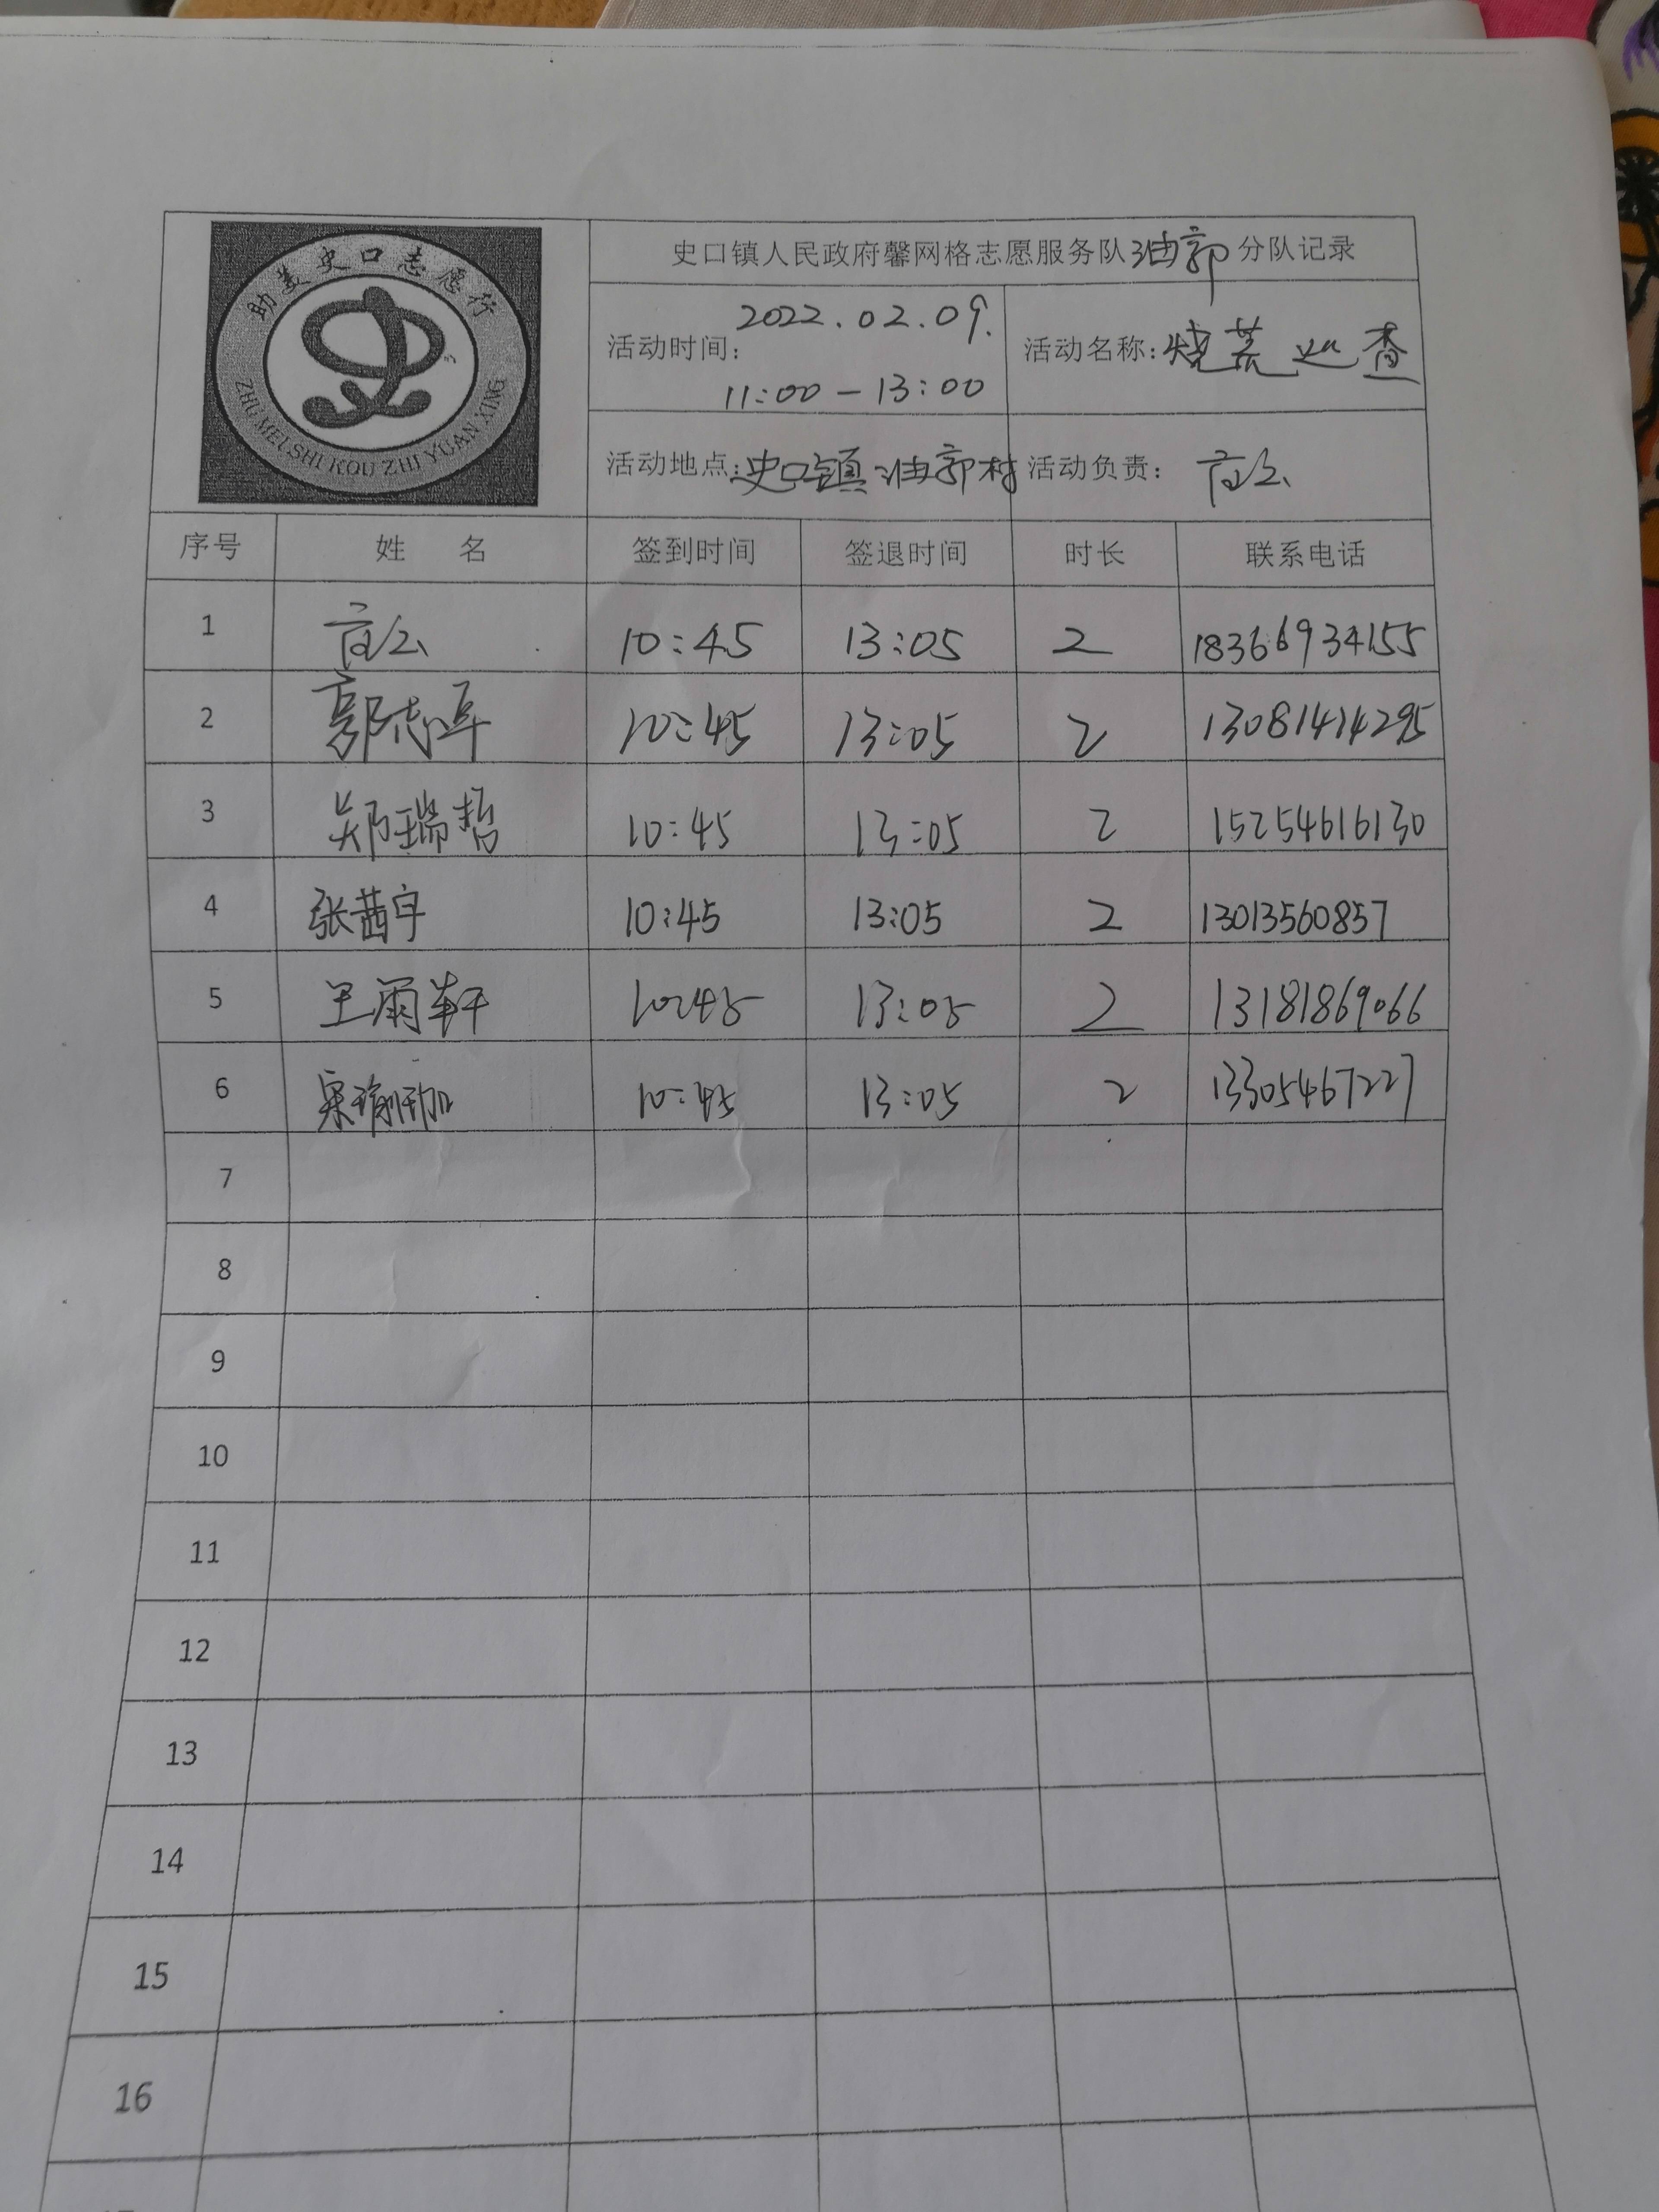 助美史口志愿行
ZHU MEI SHI KOU ZHI YUAN XING
史口镇人民政府馨网格志愿服务队油郭分队记录
活动时间: 2022.02.09.
11:00-13:00
活动名称: 烧荒巡查
活动地点: 史口镇油郭村
活动负责: 高公
序号 姓 名 签到时间 签退时间 时长 联系电话
1 高公 10:45 13:05 2 18366934155
2 郭志军 10:45 13:05 2 13081414295
3 郑瑞哲 10:45 13:05 2 15254616130
4 张茜宇 10:45 13:05 2 13013560857
5 王雨轩 10:45 13:05 2 13181869066
6 10:45 13:05 2 13305467227
7
8
9
10
11
12
13
14
15
16